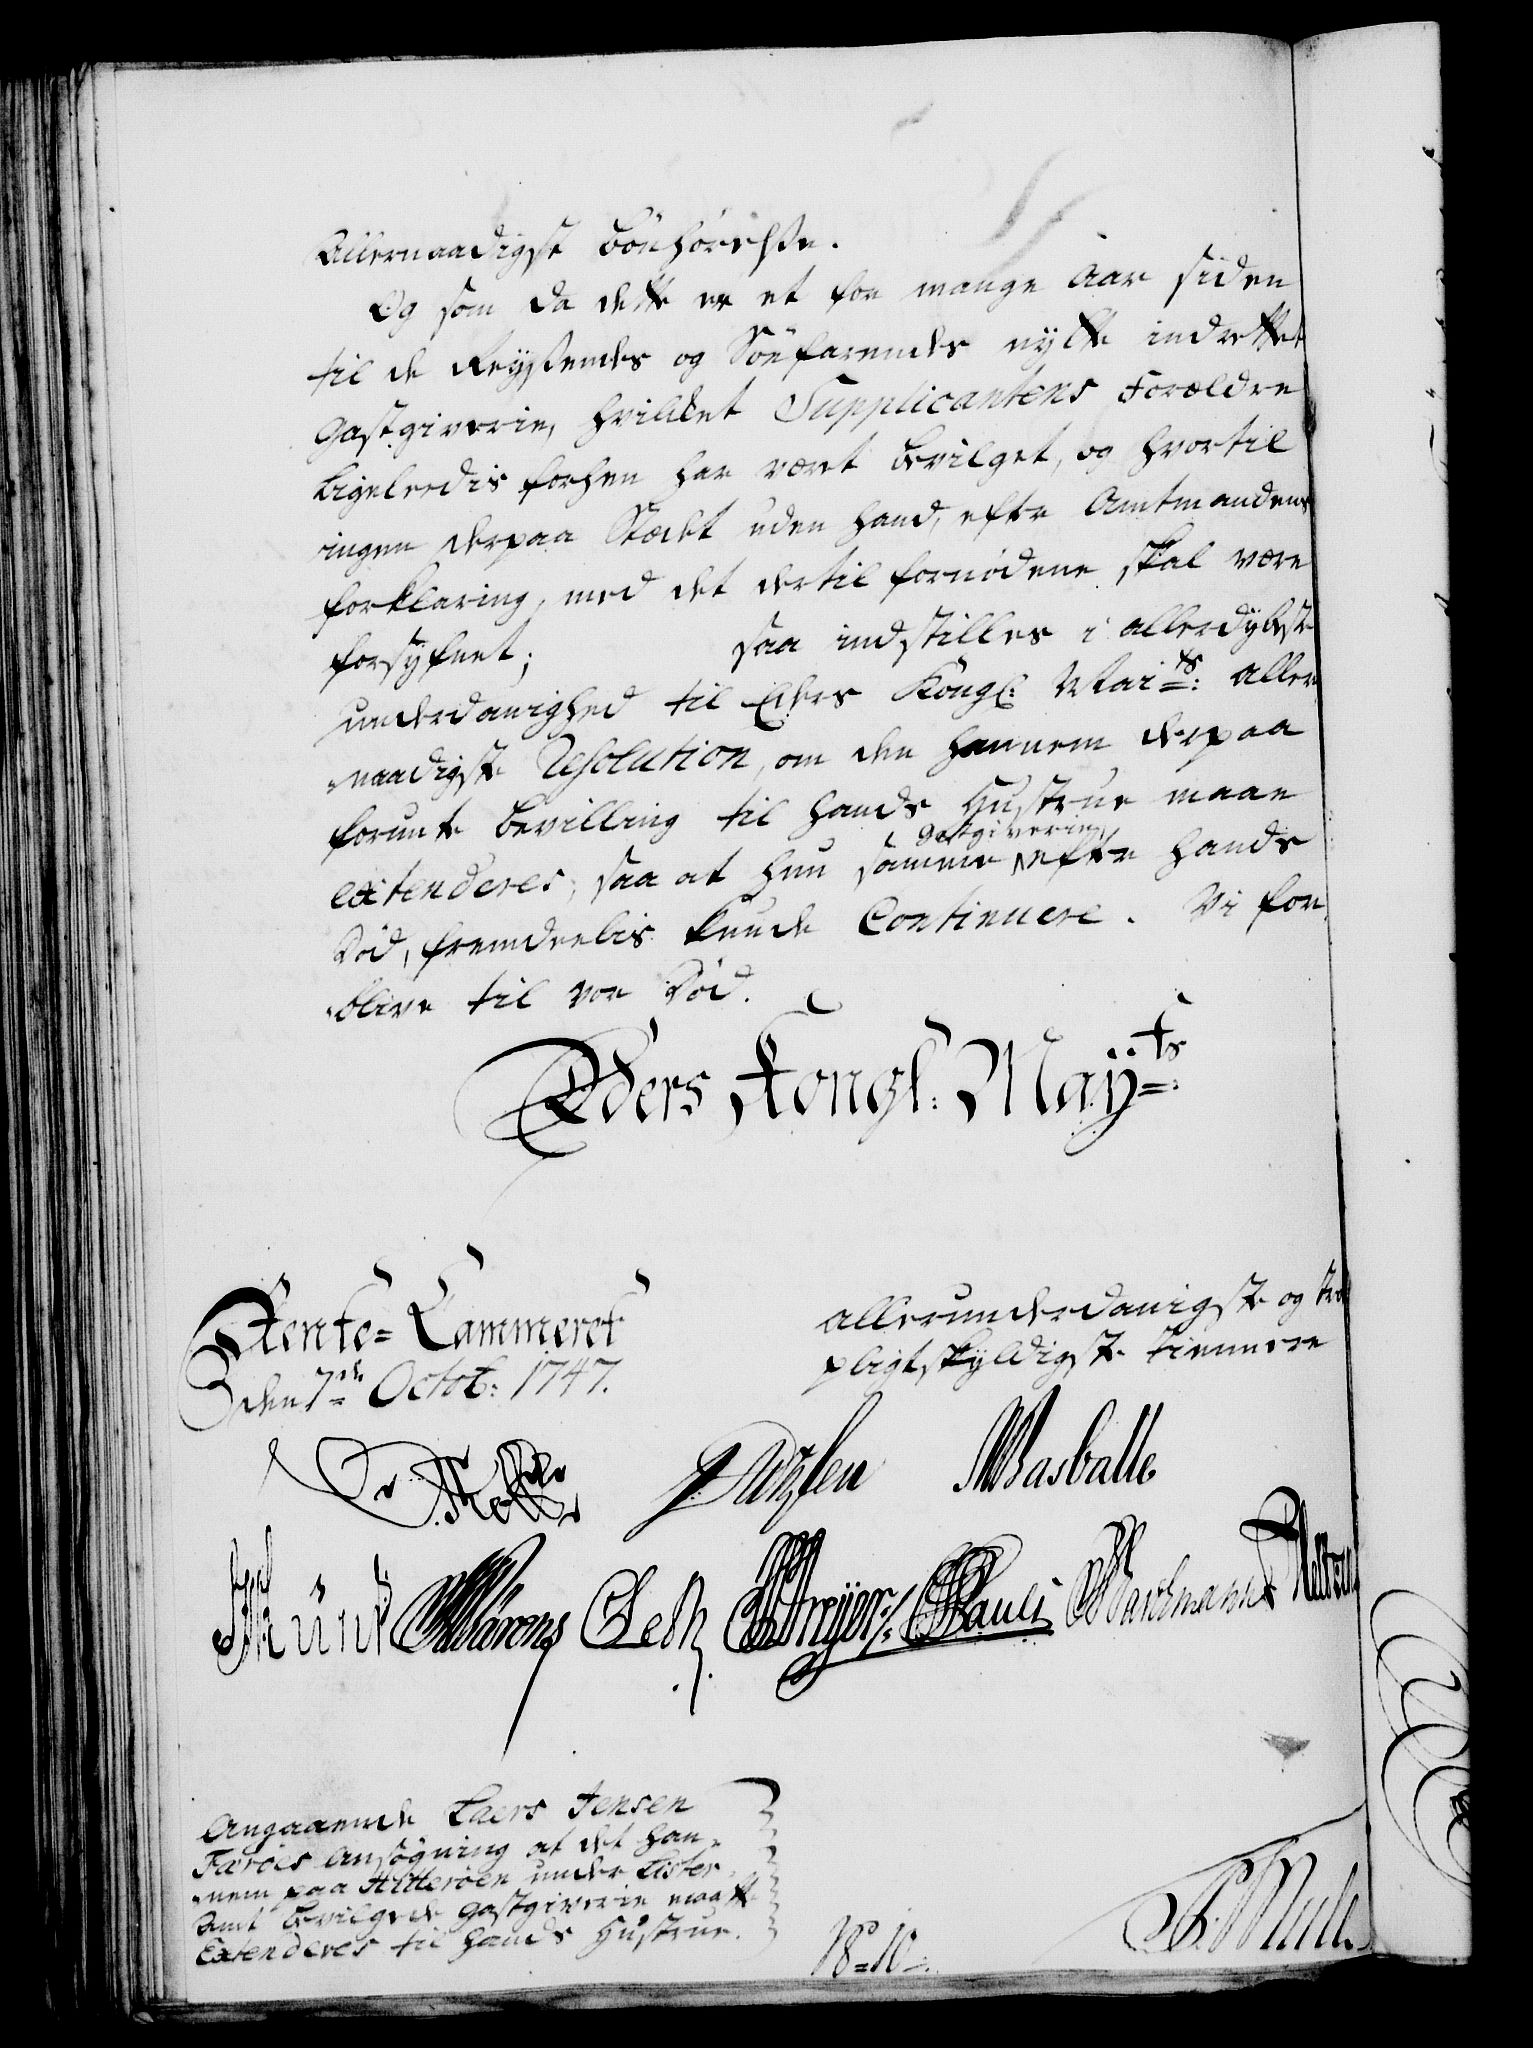 Allernaadigst Bönhörelse.
Og som da dette er et for mange Aar siden
til de Reysendes og Söefarendes nytte indrettet
Gastgiverie, hvilket Supplicantens Forældre
ligeledis forhen har været bevilget, og hvortil
ingen derpaa Stædet uden hand, efter Amtmandens
forklaring, med det dertil fornödene skal være
forsyfnet; saa indstilles i allerdybeste
underdanighed til Eders Kongl: Mai=ts: aller
naadigste Resolution, om den hannem derpaa
forundte Bevilling til hands Hustrue maae
extenderes, saa at hun samme Gastgiverie efter hands
Död, fremdeelis kunde Continuere. Vi for
blive til vor Död.
Eders Kongl: Maÿ=ts:
Rente=Cammeret
den 7de Octob: 1747.
allerunderdanigste og tro
pligtskyldigste tiennere
Wasballe
Leth Dreyer Pauli
Angaaende Laers Jensen
Faröes Ansögning at det han=
nem paa Hitteröen under Lister
Amt bevilgede Gastgiverie maatte
Extenderes til hands Hustrue.
N°=10=.